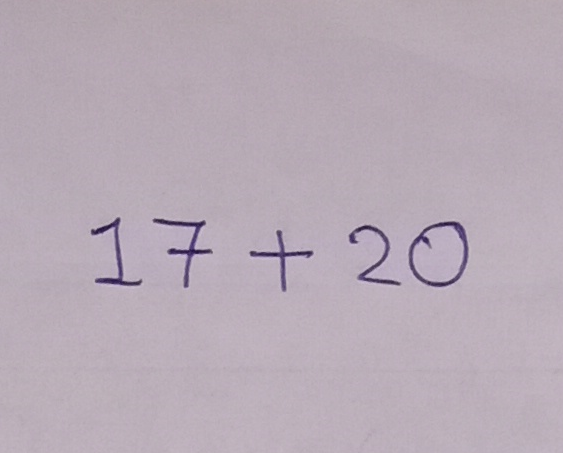 17 + 20